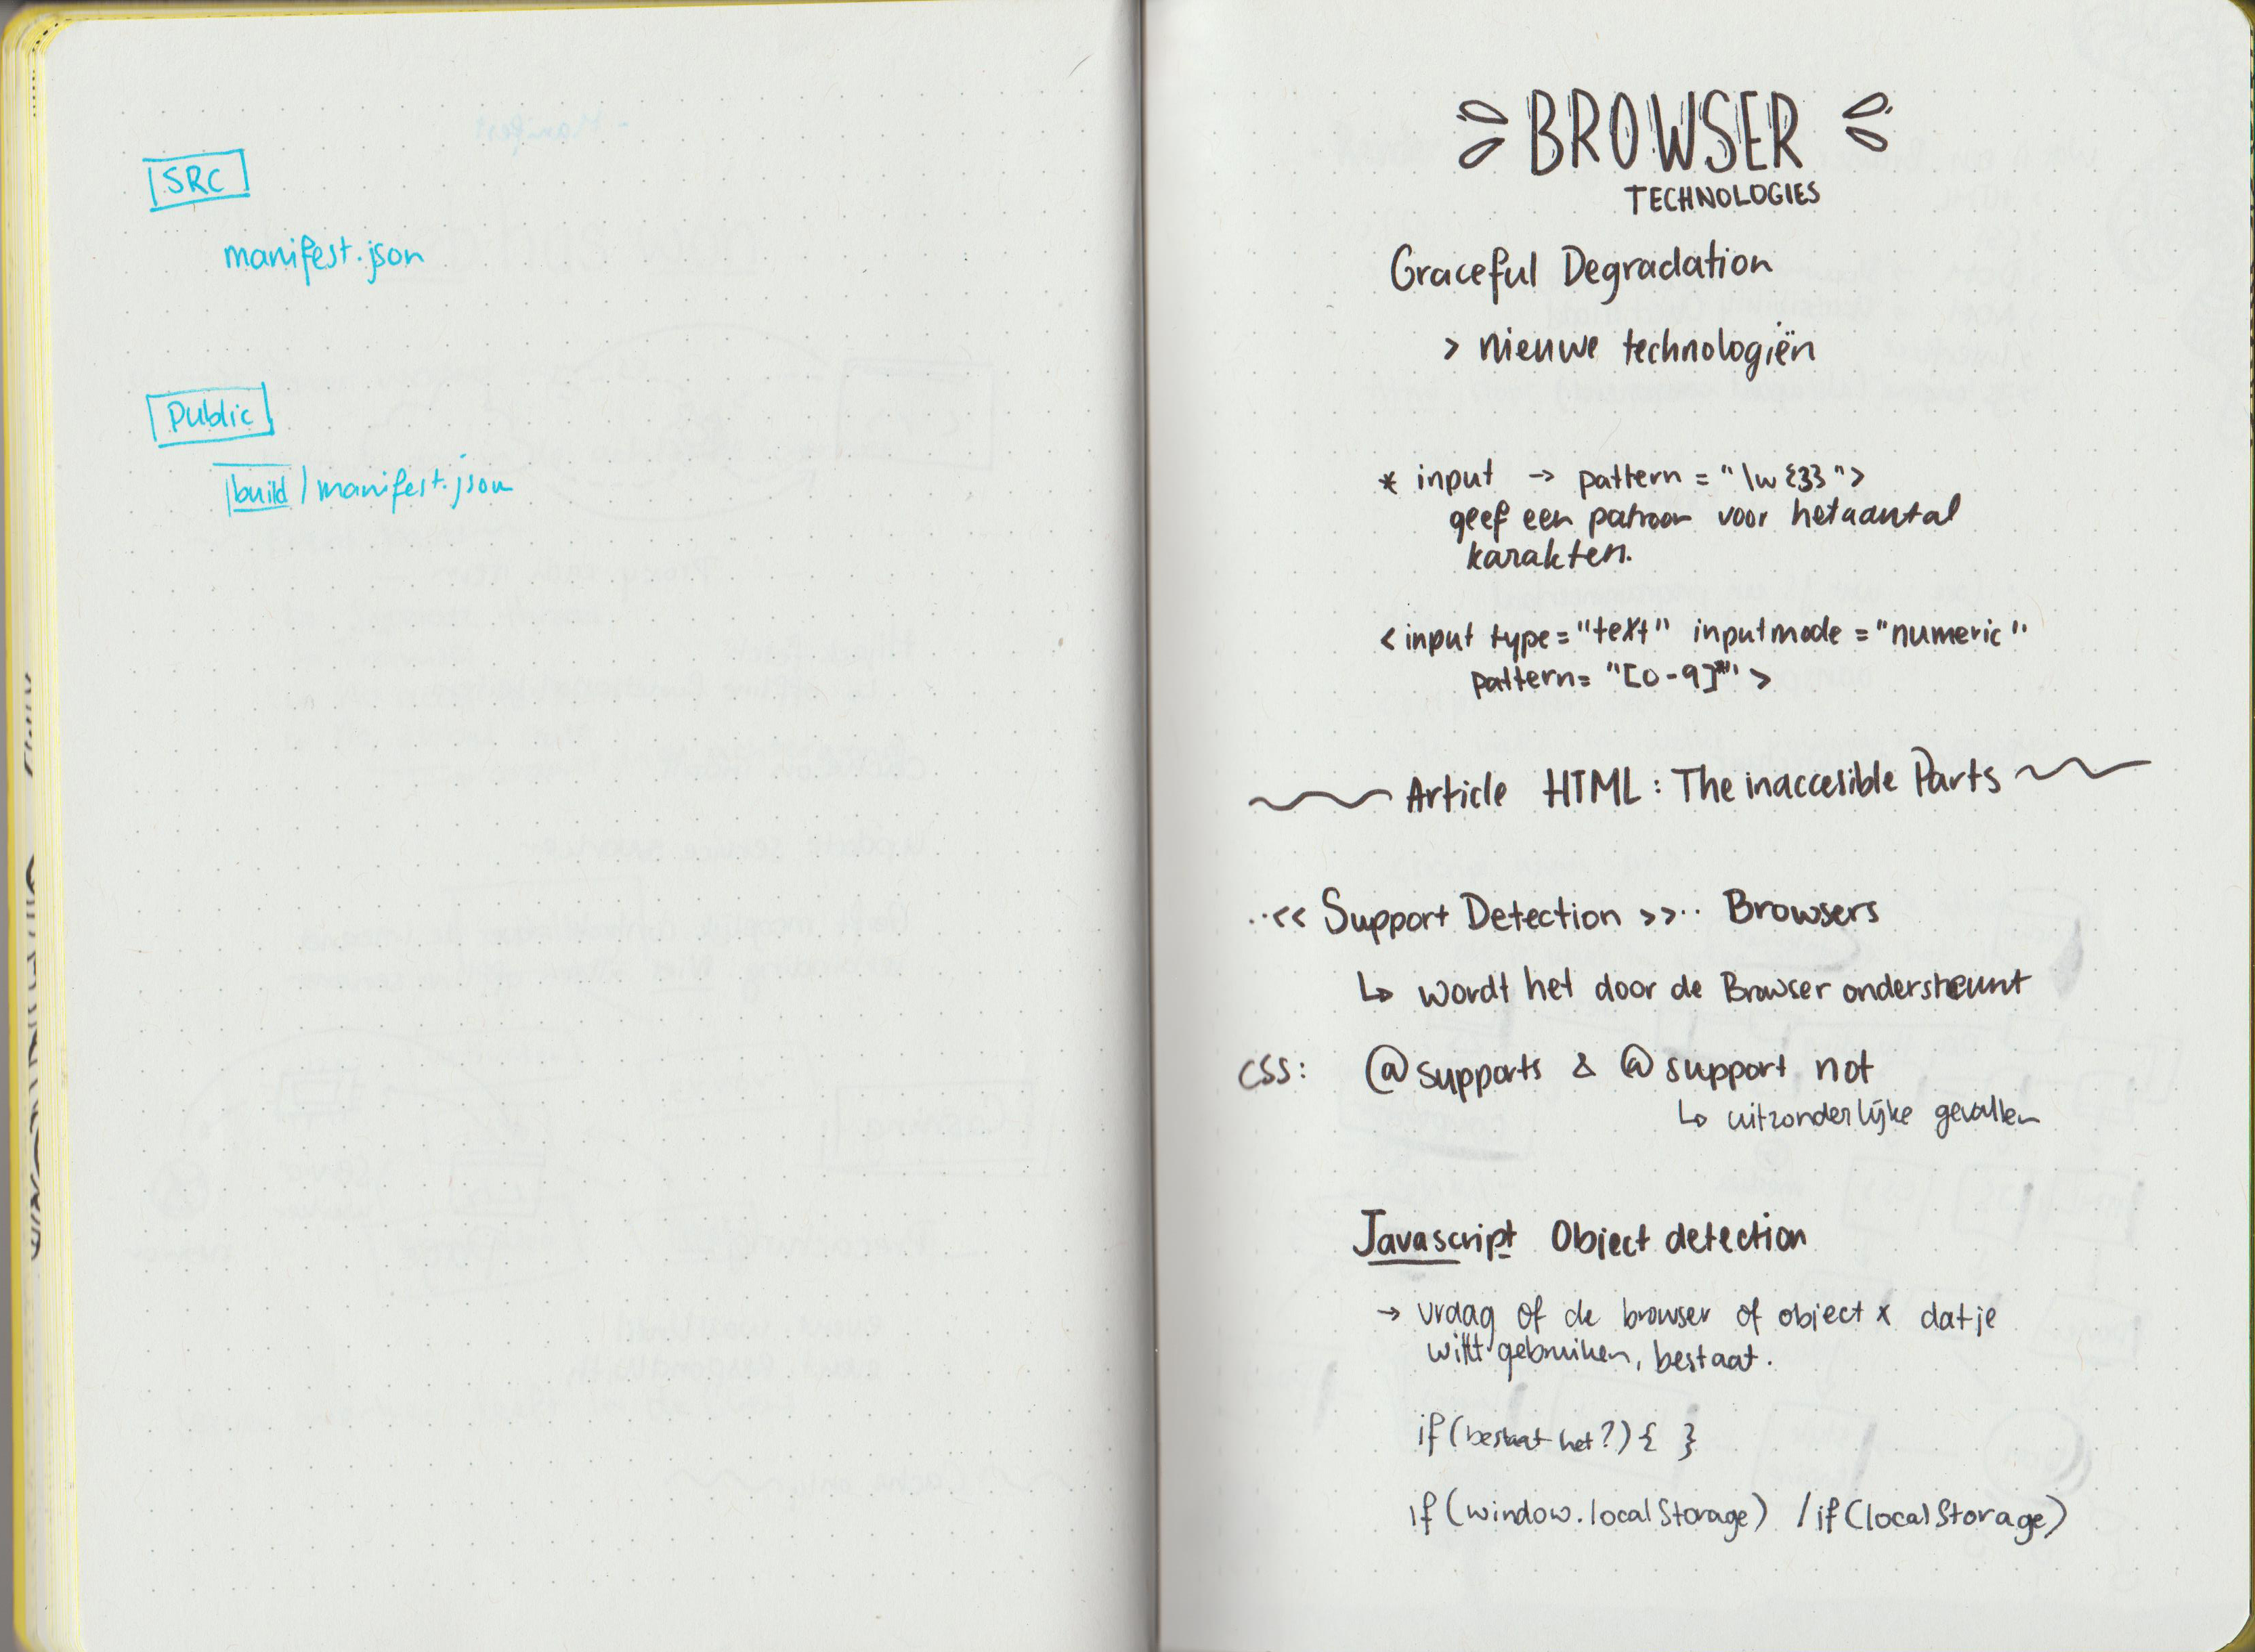 SRC
manifest.json
Public
build / manifest.json
BROWSER
TECHNOLOGIES
Graceful Degradation
> nieuwe technologieën
* input → pattern = "\w{3}">
geef een patroon voor het aantal
karakters.
<input type="text" inputmode="numeric"
pattern="[0-9]*">
Article HTML: The inaccesible Parts
··<< Support Detection >>·· Browsers
↳ wordt het door de Browser ondersteunt
CSS: @supports & @support not
↳ uitzonderlijke gevallen
Javascript Object detection
→ vraag of de browser of object x dat je
wilt gebruiken, bestaat.
if(bestaat het?){ }
if(window.localStorage) / if(localStorage)